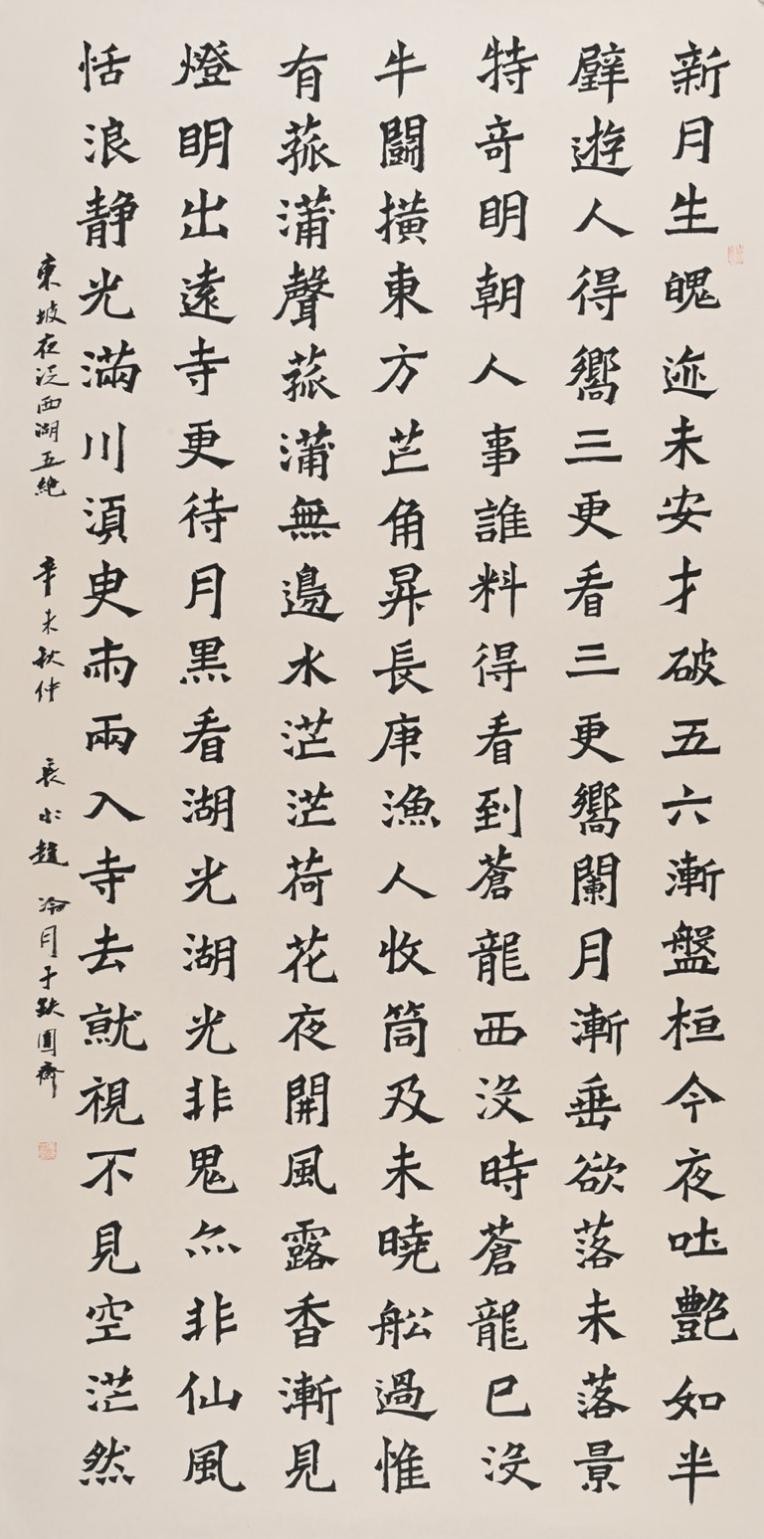 新月生魄迹未安才破五六漸盤桓今夜吐艷如半
壁遊人得嚮三更看三更嚮闌月漸垂欲落未落景
特奇明朝人事誰料得看到蒼龍西沒時蒼龍已沒
牛鬪橫東方芒角昇長庚漁人收筒及未曉船過惟
有菰蒲聲菰蒲無邊水茫茫荷花夜開風露香漸見
燈明出遠寺更待月黑看湖光湖光非鬼亦非仙風
恬浪静光滿川須臾兩兩入寺去就視不見空茫然
東坡夜泛西湖五絶 辛未秋仲 趙冷月于缺圓齋